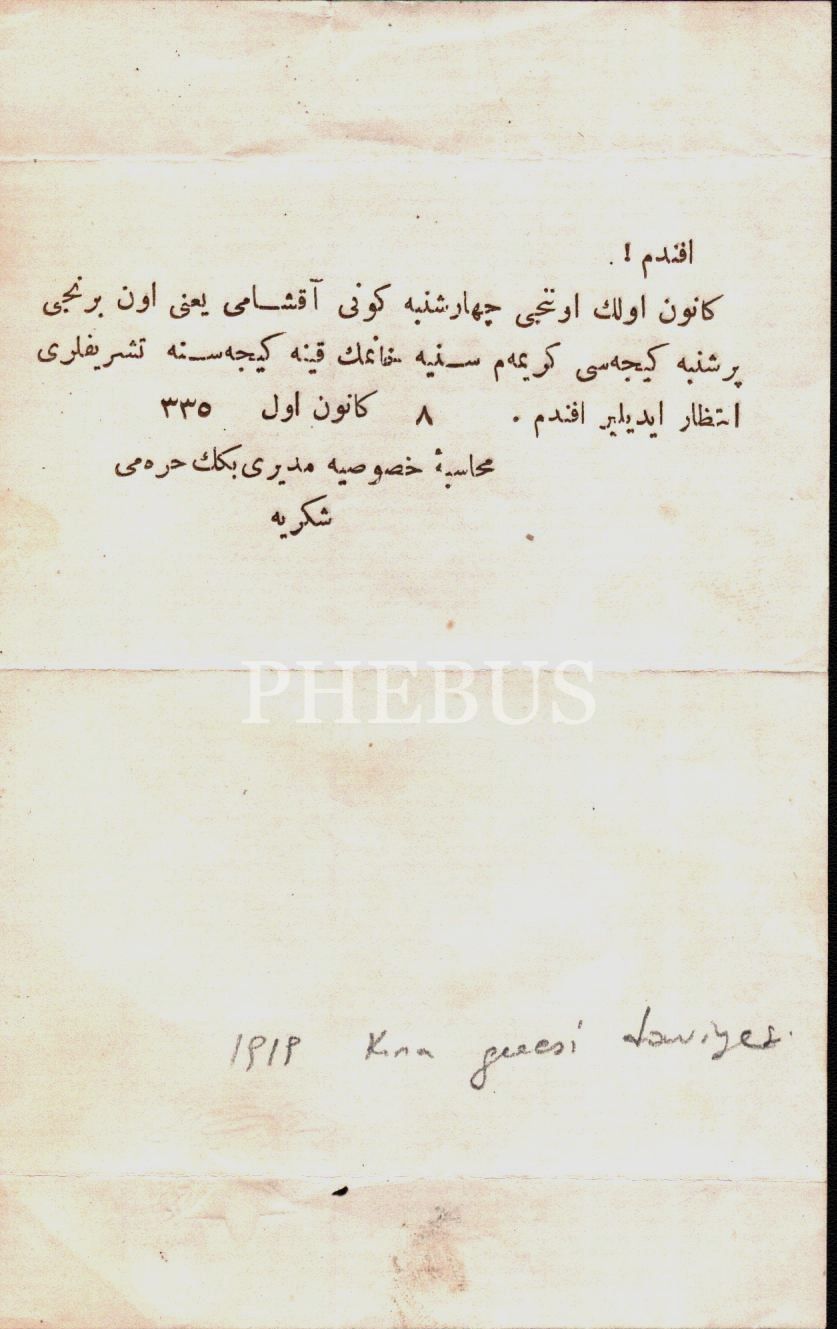 افندم !
كانون اولك اوننجى چهارشنبه كونى آقشامى يعنى اون برنجى
پرشنبه كيجه‌سى كريمه‌م سنيه خانمك قينه كيجه‌سنه تشريفلرى
انتظار ايديلير افندم . ٨ كانون اول ٣٣٥
محاسبهٔ خصوصيه مديرى بكك حره‌مى
شكريه
PHEBUS
1919 Kına gecesi daviyes.